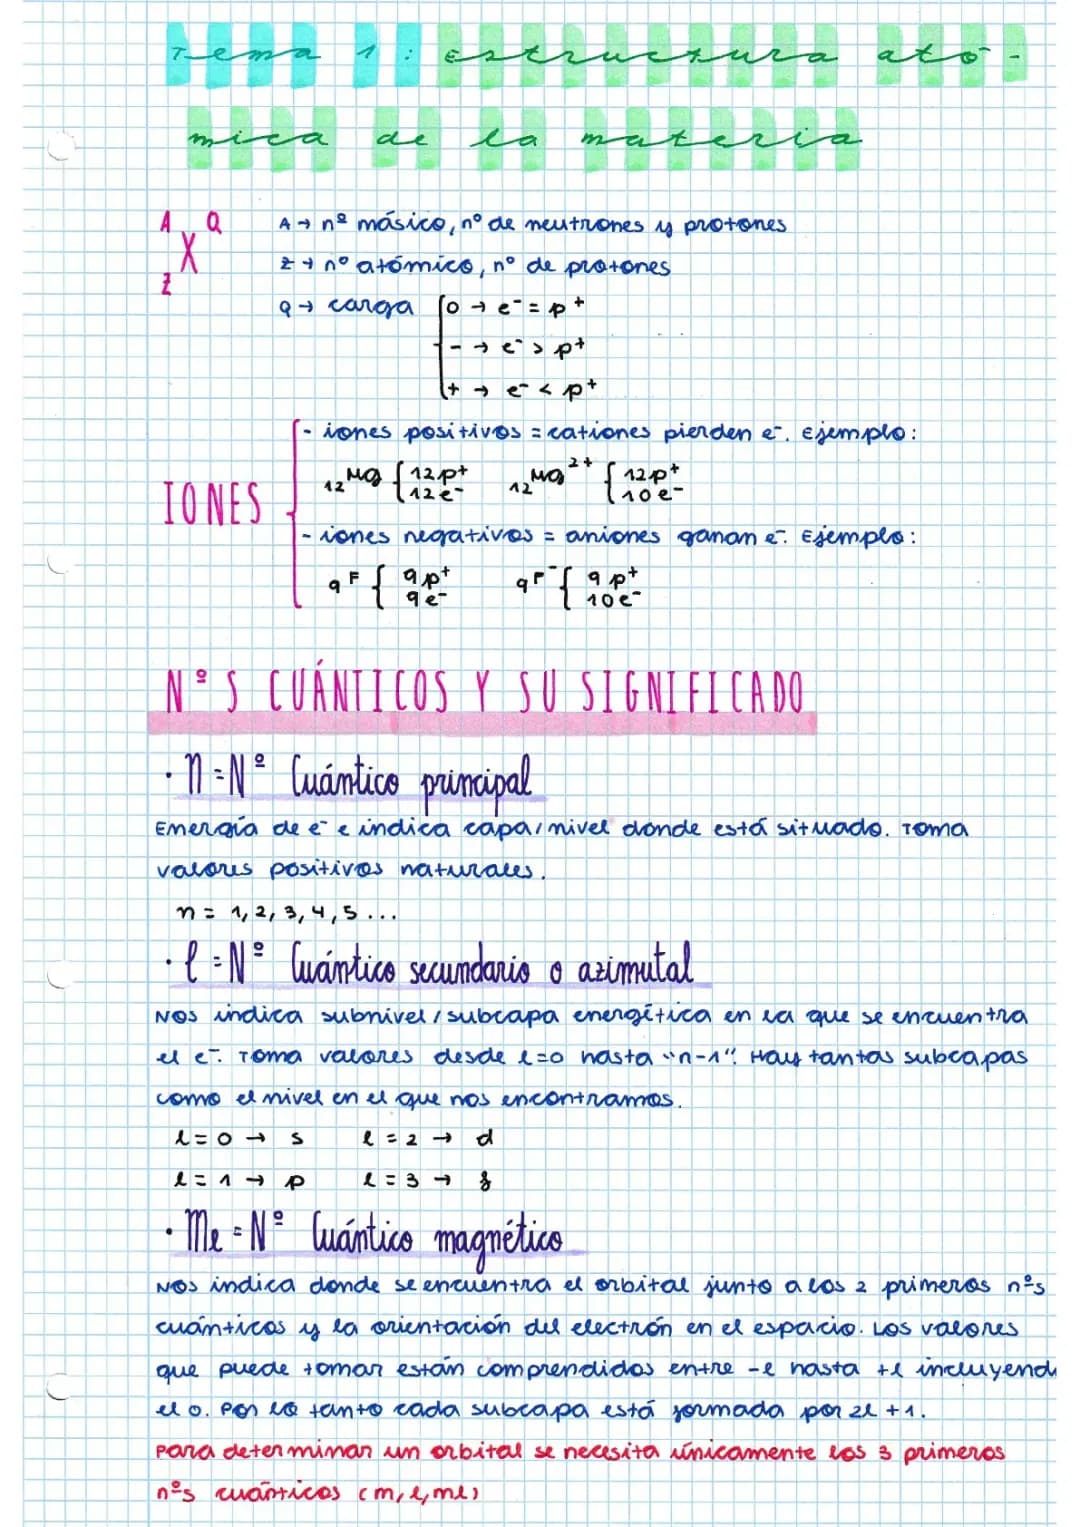 Tema 1: Estructura ató-
mica de la materia
A Q
X
Z
A → nº másico, nº de neutrones y protones
Z → nº atómico, nº de protones
Q → carga { 0 → e⁻ = p⁺
- → e⁻ > p⁺
+ → e⁻ < p⁺
IONES
- iones positivos = cationes pierden e⁻. Ejemplo:
₁₂Mg { 12p⁺ 12e⁻ ₁₂Mg²⁺ { 12p⁺ 10e⁻
- iones negativos = aniones ganan e⁻. Ejemplo:
₉F { 9p⁺ 9e⁻ ₉F⁻ { 9p⁺ 10e⁻
NºS CUÁNTICOS Y SU SIGNIFICADO
· n = Nº Cuántico principal
Energía de e⁻ e indica capa/nivel donde está situado. Toma
valores positivos naturales.
n = 1, 2, 3, 4, 5 ...
· l = Nº Cuántico secundario o azimutal
Nos indica subnivel/subcapa energética en la que se encuentra
el e⁻. Toma valores desde l=0 hasta "n-1". Hay tantas subcapas
como el nivel en el que nos encontramos.
l = 0 → s l = 2 → d
l = 1 → p l = 3 → f
· Me = Nº Cuántico magnético
Nos indica donde se encuentra el orbital junto a los 2 primeros nºs
cuánticos y la orientación del electrón en el espacio. Los valores
que puede tomar están comprendidos entre -l hasta +l incluyend
el 0. Por lo tanto cada subcapa está formada por 2l +1.
Para determinar un orbital se necesita únicamente los 3 primeros
nºs cuánticos (m, l, ml)